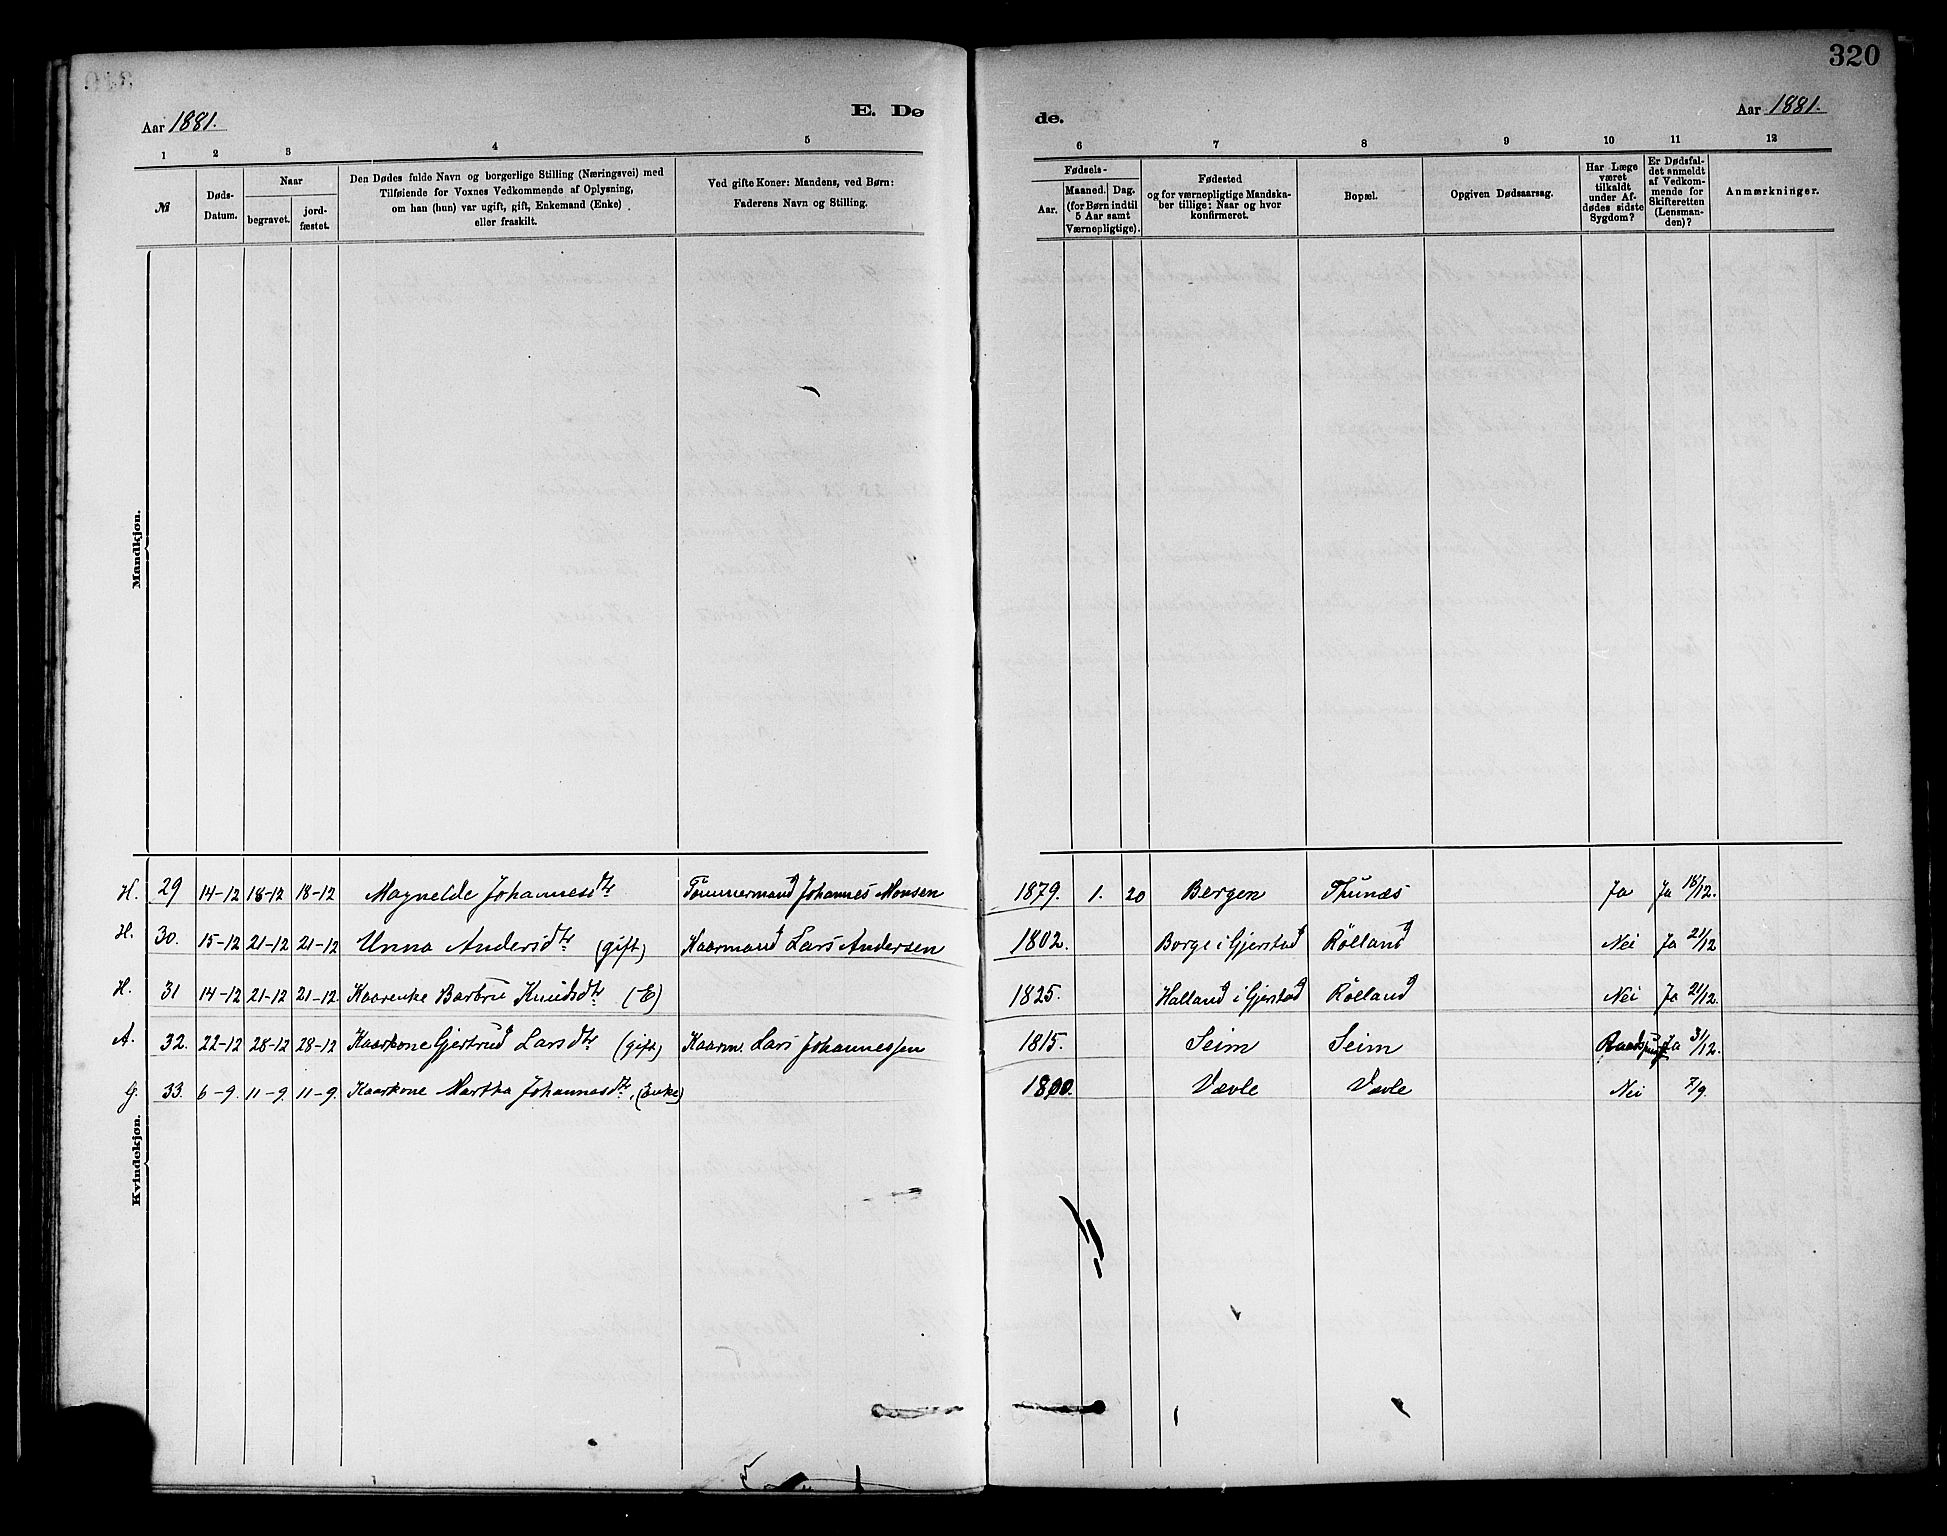 320
Aar 1881.
E. Dø
de.
Aar 1881.
1 2 3 4 5 6 7 8 9 10 11 12
№
Døds-Datum.
Naar
begravet.
jord-fæstet.
Den Dødes fulde Navn og borgerlige Stilling (Næringsvei) med
Tilføiende for Voxnes Vedkommende af Oplysning,
om han (hun) var ugift, gift, Enkemand (Enke)
eller fraskilt.
Ved gifte Koner: Mandens, ved Børn:
Faderens Navn og Stilling.
Fødsels-
Aar.
Maaned. Dag.
(for Børn indtil
5 Aar samt
Værnepligtige).
Fødested
og for værnepligtige Mandska-
ber tillige: Naar og hvor
konfirmeret.
Bopæl.
Opgiven Dødsaarsag.
Har Læge
været
tilkaldt
under Af-
dødes sidste
Sygdom?
Er Dødsfal-
det anmeldt
af Vedkom-
mende for
Skifteretten
(Lensman-
den)?
Anmærkninger.
Mandkjøn.
H. 29 14-12 18-12 18-12 Magnelde Johannesdtr Tømmermand Johannes Monsen 1879. 1. 20 Bergen Thunæs Ja Ja 18/12.
H. 30. 15-12 21-12 21-12 Unna Andersdtr (gift) Kaarmand Lars Andersen 1802. Borge i Gjerstad Rølland Nei Ja 21/12
H. 31 14-12 21-12 21-12 Kaarenke Barbru Knudsdtr (E) 1825. Halland i Gjerstad Rølland Nei Ja 21/12.
A. 32. 22-12 28-12 28-12 Kaarkone Gjertrud Larsdtr (gift) Kaarm. Lars Johannessen 1815. Seim Seim Raadspurgt Ja 31/12.
G. 33. 6-9 11-9. 11-9. Kaarkone Martha Johannesdtr. (Enke) 1800. Vævle Vævle Nei 7/9.
Kvindekjøn.